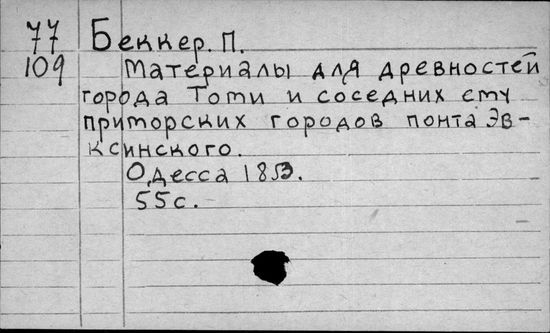 77 Беккер. П.
109 Материалы для древностей
города Томи и соседних ему
приморских городов понта Эв-
ксинского.
Одесса 1853.
55 с.